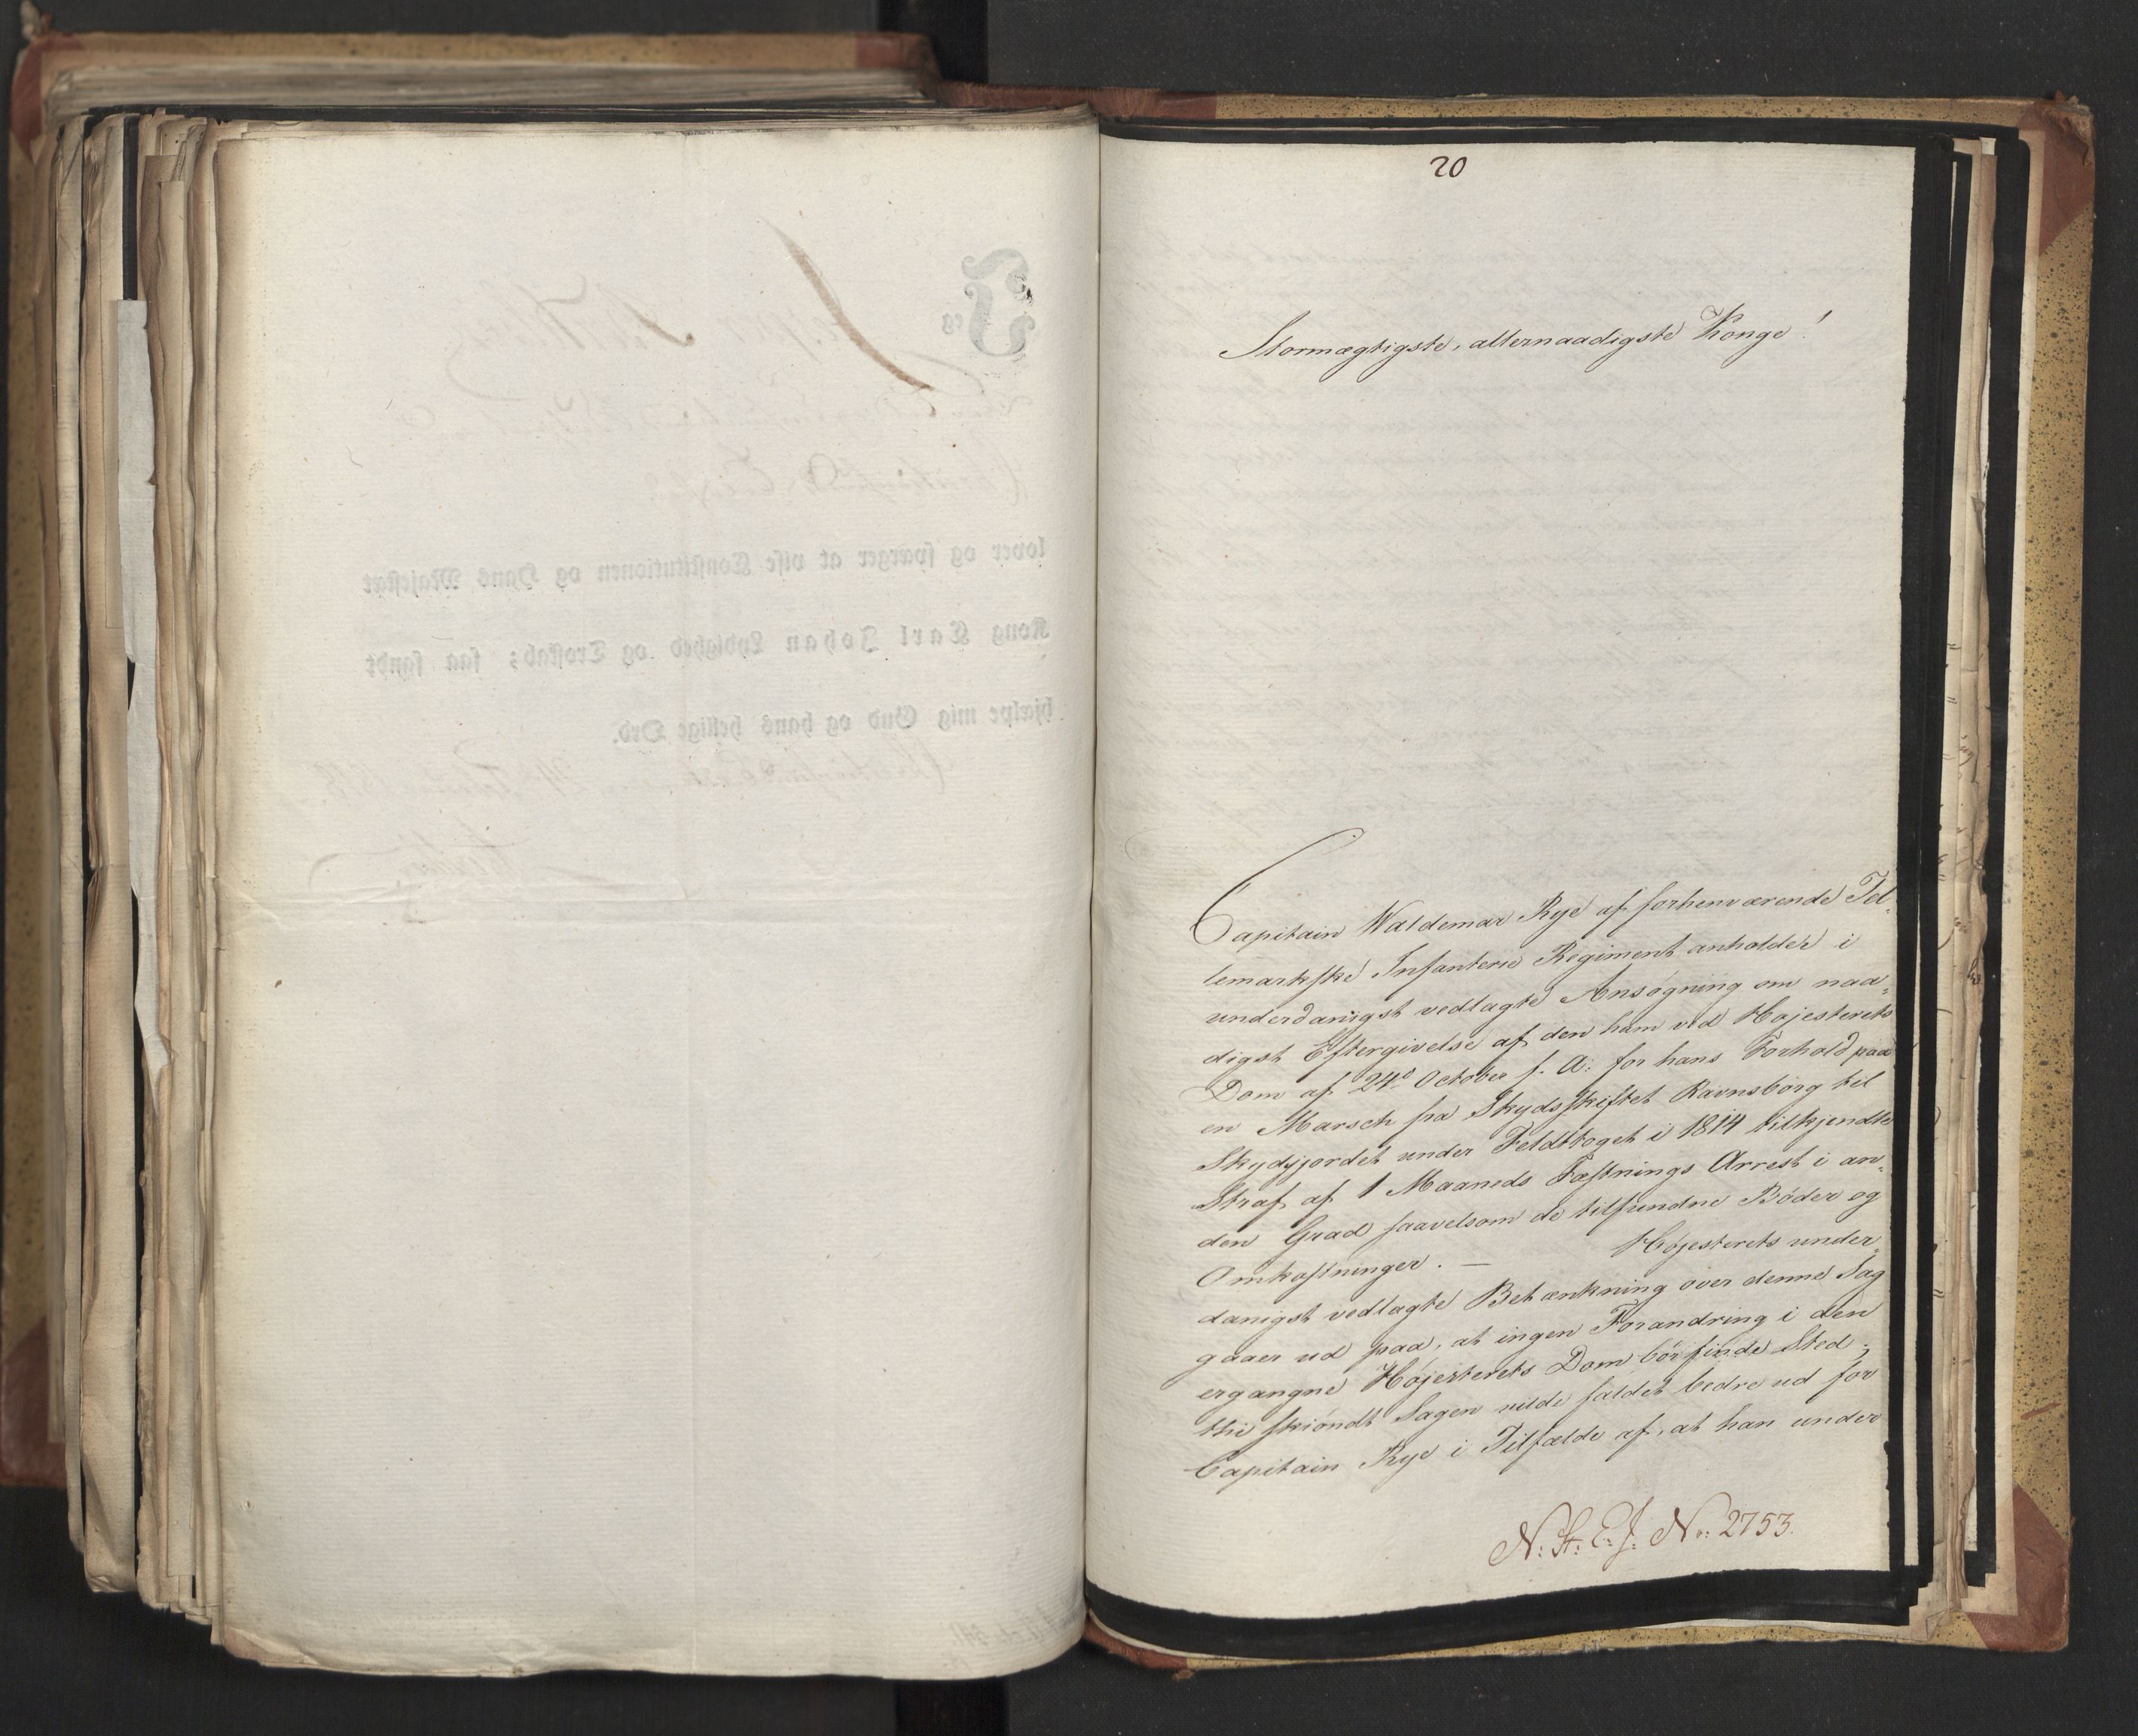 20
Stormægtigste, allernaadigste Konge!
Capitain Waldemar Rye af forhenværende Tel-
lemarkske Infanterie Regiment anholder i
underdanigst vedlagte Ansøgning om naa-
digst Eftergivelse af den ham ved Højesterets
Dom af 24de October f. A: for hans Forhold paa
en Marsch fra Skydsskiftet Ravnsborg til
Skydsjordet under Feldttoget i 1814 tilkjendte
Straf af 1 Maaneds Fæstnings Arrest i an-
den Grad saavelsom de tilfundne Bøder og
Omkostninger. — Højesterets under-
danigst vedlagte Betænkning over denne Sag
gaaer ud paa, at ingen Forandring i den
ergangne Højesterets Dom bør finde Sted;
thi skiøndt Sagen vilde faldet bedre ud for
Capitain Rye i Tilfælde af, at han under
N: St: E. J: No: 2753.
lover og sværger at vise Constitutionen og Hans Majestæt
Kong Carl Johan Lydighed og Troskab; saa sandt
hjælpe mig Gud og hans hellige Ord.